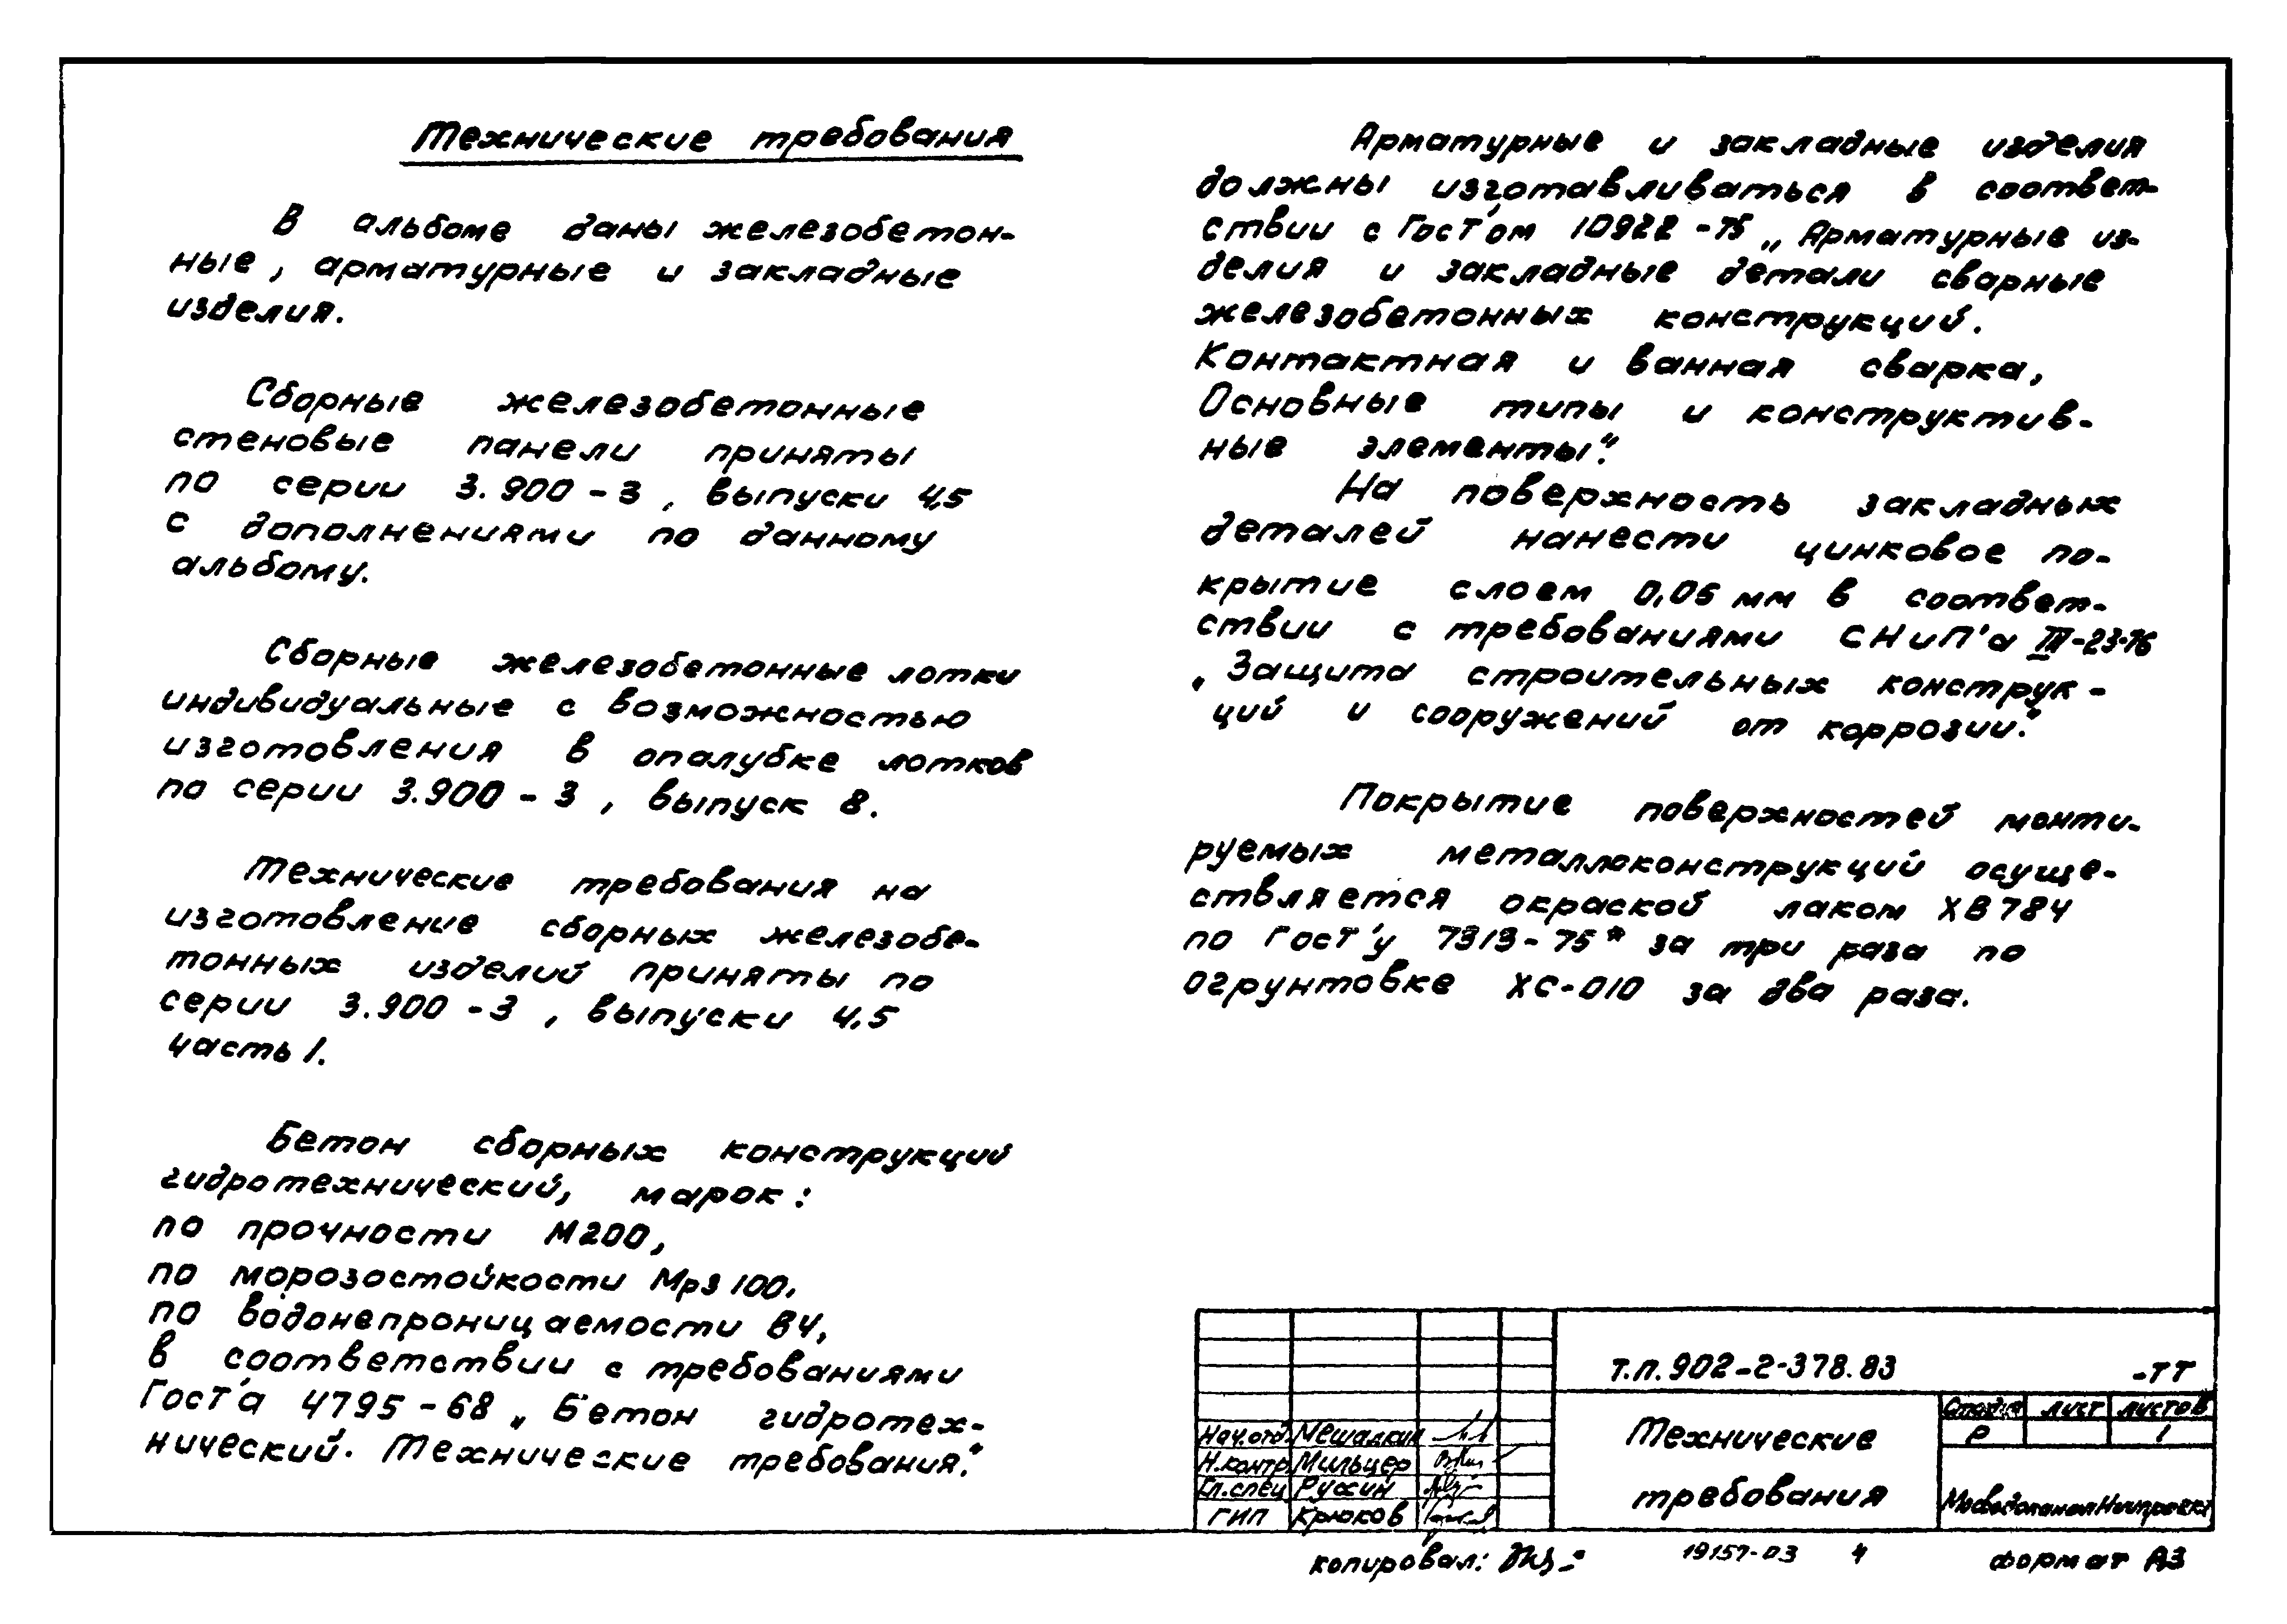 Технические требования
В альбоме даны железобетон-
ные, арматурные и закладные
изделия.
Сборные железобетонные
стеновые панели приняты
по серии 3.900-3, выпуски 4,5
с дополнениями по данному
альбому.
Сборные железобетонные лотки
индивидуальные с возможностью
изготовления в опалубке лотков
по серии 3.900-3, выпуск 8.
Технические требования на
изготовление сборных железобе-
тонных изделий приняты по
серии 3.900-3, выпуски 4,5
часть 1.
Бетон сборных конструкций
гидротехнический, марок:
по прочности М200,
по морозостойкости Мрз 100,
по водонепроницаемости В4,
в соответствии с требованиями
Гост'а 4795-68 „Бетон гидротех-
нический. Технические требования."
Арматурные и закладные изделия
должны изготавливаться в соответ-
ствии с Гост'ом 10922-75 „Арматурные из-
делия и закладные детали сварные
железобетонных конструкций.
Контактная и ванная сварка,
Основные типы и конструктив-
ные элементы".
На поверхность закладных
деталей нанести цинковое по-
крытие слоем 0,05 мм в соответ-
ствии с требованиями СНиП'а III-23-76
„Защита строительных конструк-
ций и сооружений от коррозии."
Покрытие поверхностей монти-
руемых металлоконструкций осуще-
ствляется окраской лаком ХВ784
по Гост'у 7313-75* за три раза по
огрунтовке ХС-010 за два раза.
т.п. 902-2-378.83 -ТТ
Стадия лист листов
Р 1
Технические
требования
МосводоканалНиипроект
Нач.отд. Мешалкин
Н.контр. Мильцер
Гл.спец. Русин
ГИП Крюков
копировал:
19157-03 4
формат А3